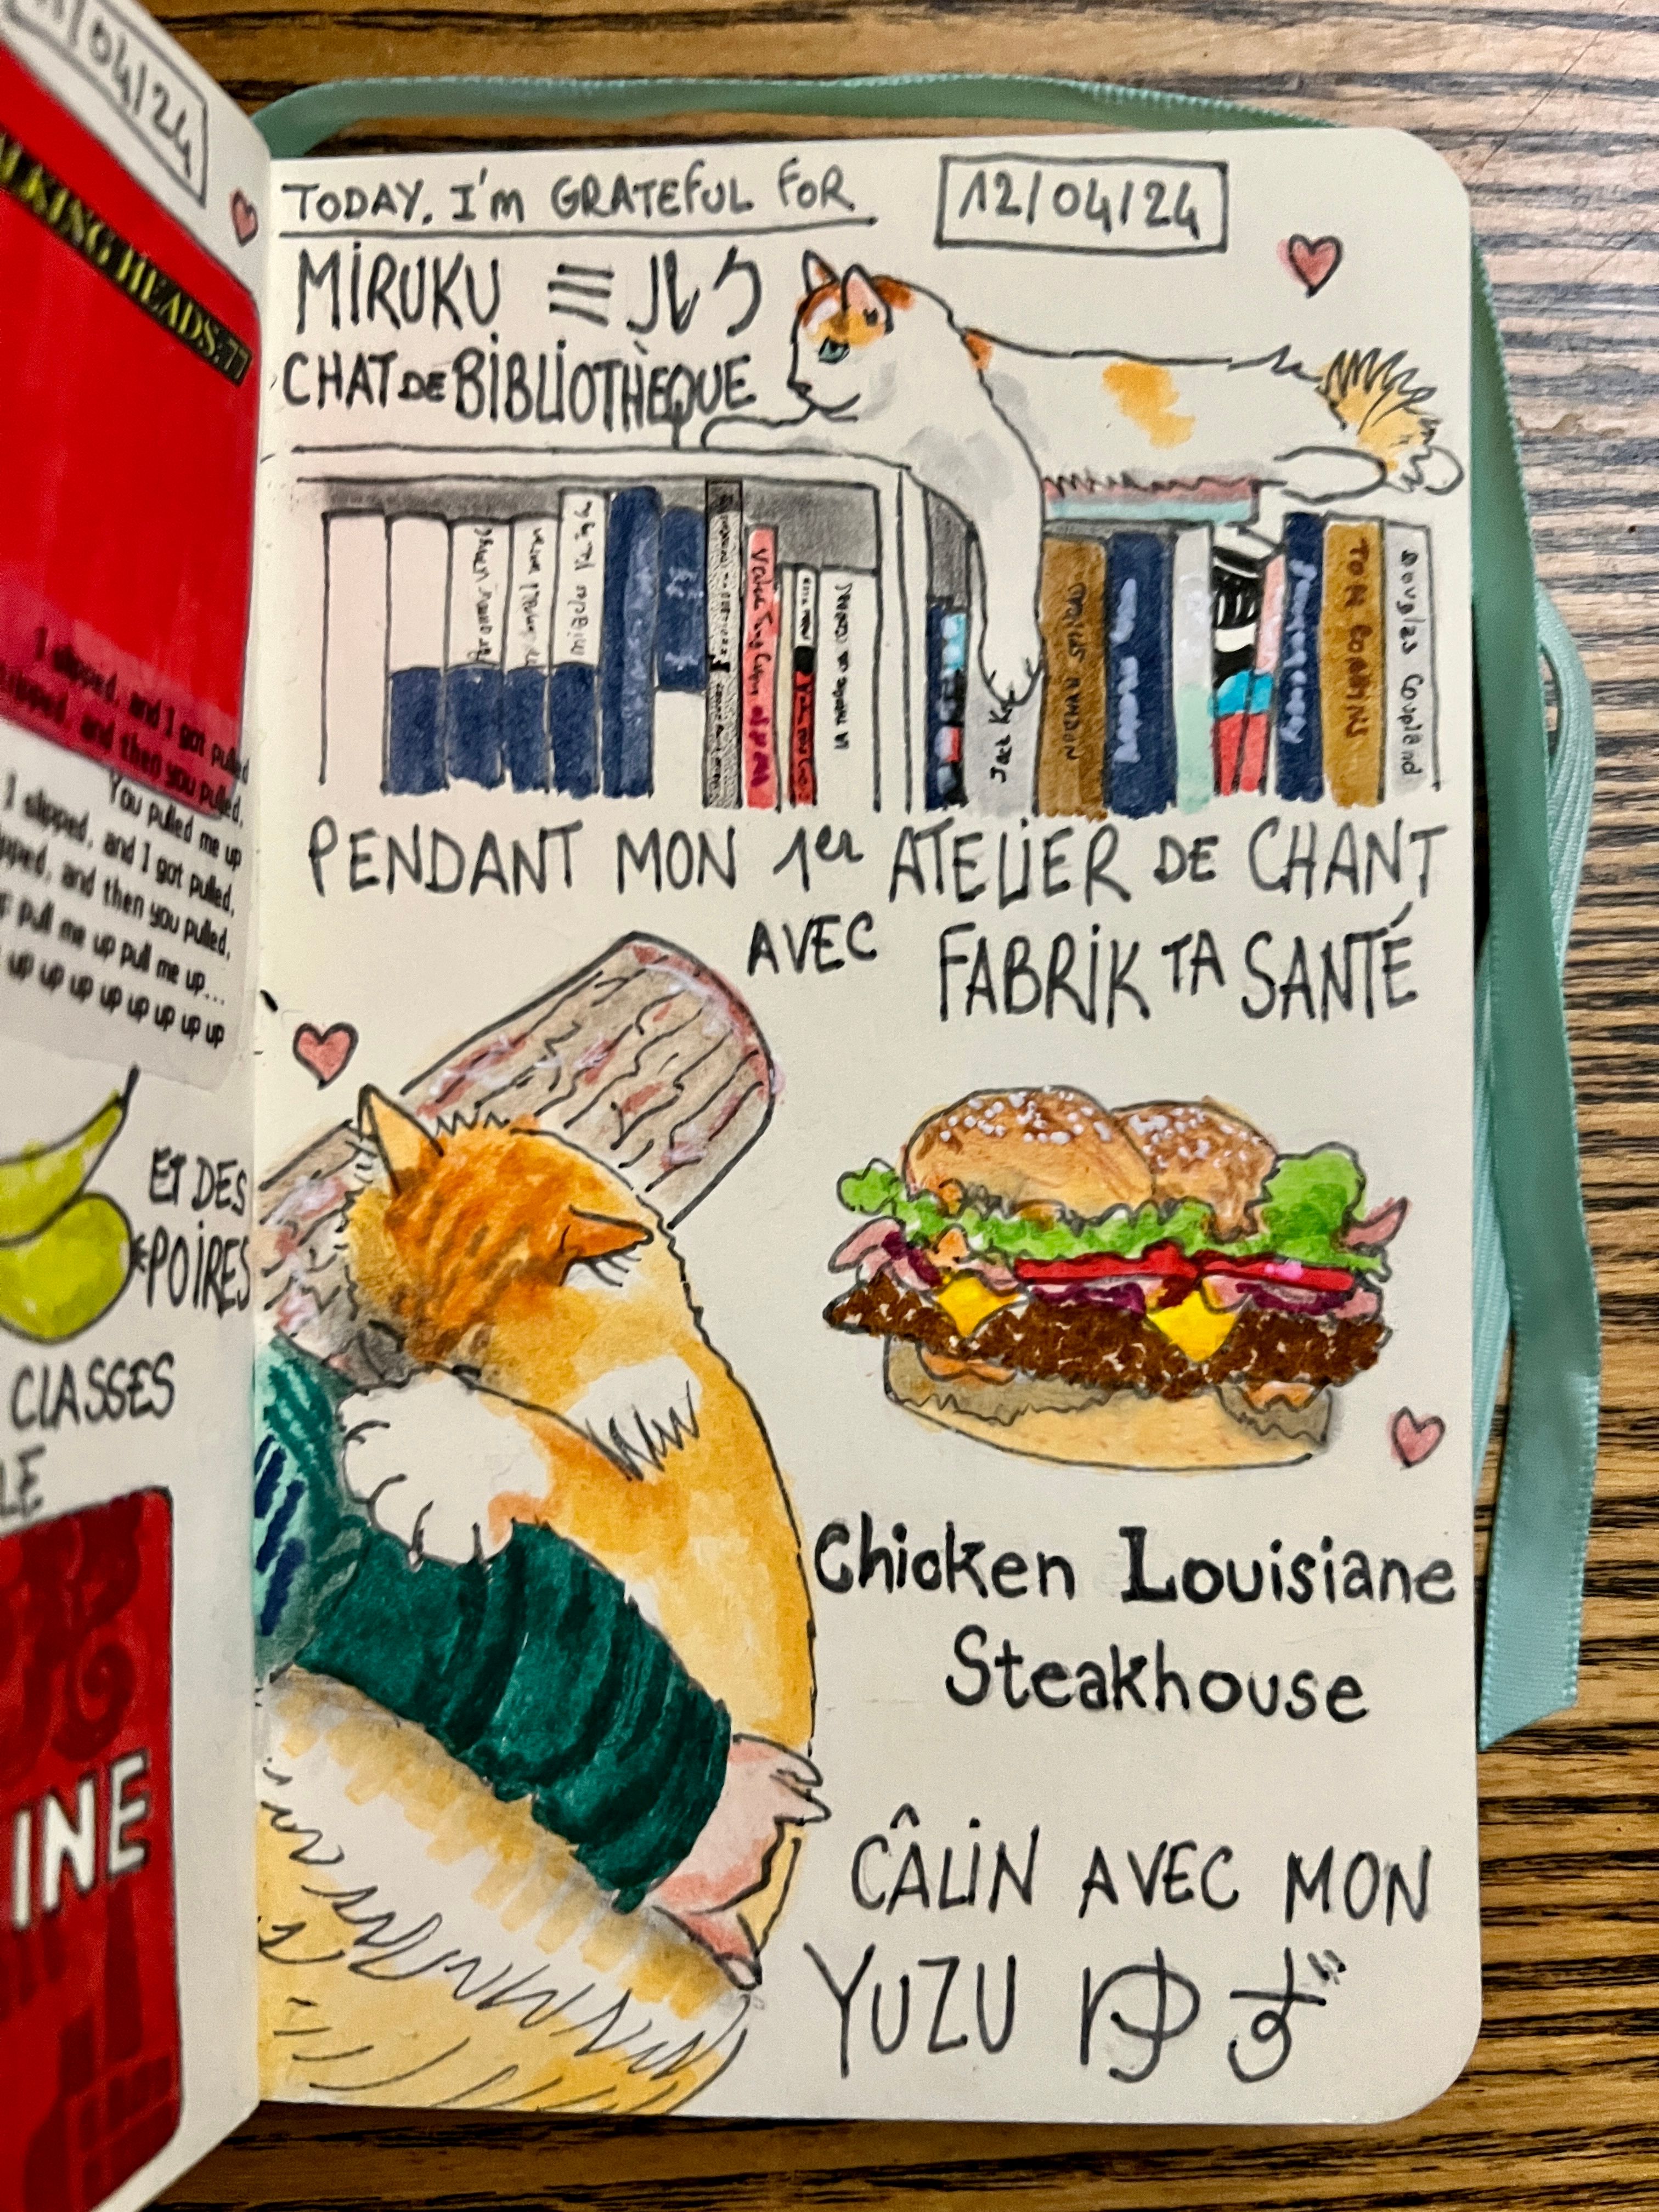 04/24
TALKING HEADS:77
I slipped, and I got pulled
slipped, and then you pulled.
You pulled me up
I slipped, and I got pulled,
slipped, and then you pulled,
pull me up pull me up...
up up up up up up up up
ET DES
POIRES
CLASSES
LE
INE
TODAY, I'm GRATEFUL FOR
12/04/24
MIRUKU ミルク
CHAT DE BIBLIOTHÈQUE
Jack K
TOM ROBBINS
Douglas Coupland
PENDANT MON 1er ATELIER DE CHANT
AVEC FABRIK TA SANTÉ
Chicken Louisiane
Steakhouse
CÂLIN AVEC MON
YUZU ゆず